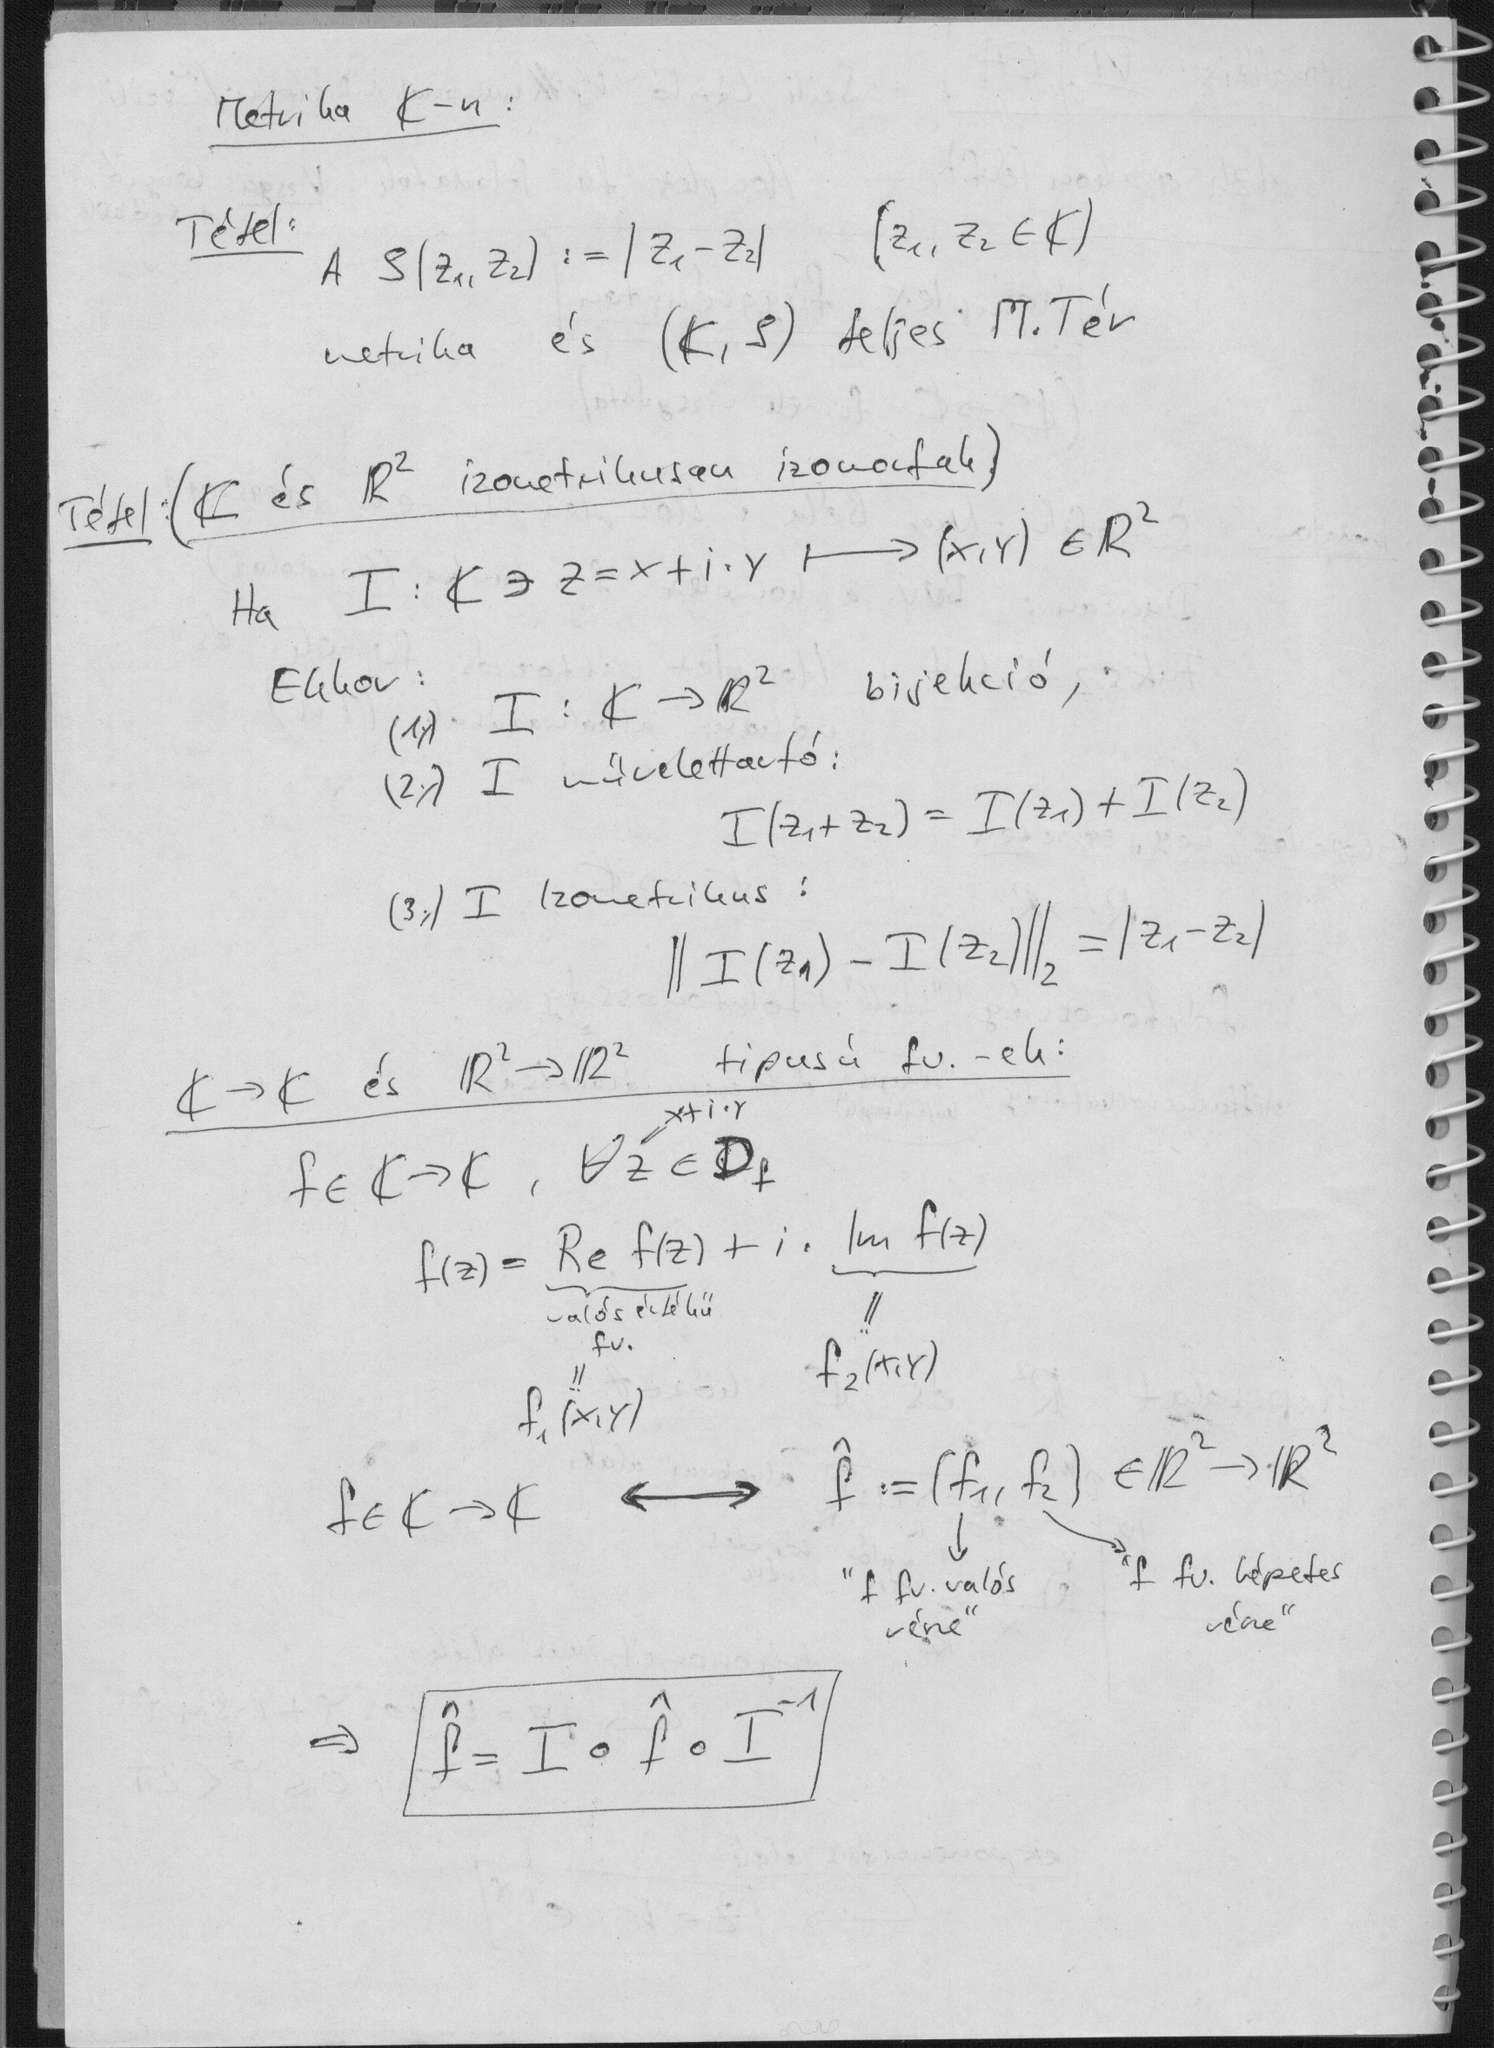 Metrika ℂ-n:
Tétel: A ρ(z₁, z₂) := |z₁ - z₂| (z₁, z₂ ∈ ℂ)
metrika és (ℂ, ρ) teljes M.Tér
Tétel: (ℂ és ℝ² izometrikusan izomorfak)
Ha I : ℂ ∋ z = x + i · y ⟼ (x, y) ∈ ℝ²
Ekkor:
(1.) I : ℂ → ℝ² bijekció,
(2.) I művelettartó:
I(z₁ + z₂) = I(z₁) + I(z₂)
(3.) I Izometrikus:
‖I(z₁) - I(z₂)‖₂ = |z₁ - z₂|
ℂ → ℂ és ℝ² → ℝ² tipusú fv.-ek:
x + i · y
f ∈ ℂ → ℂ, ∀z ∈ D_f
f(z) = Re f(z) + i · Im f(z)
valós értékű
fv.
=:
f₂(x, y)
=:
f₁(x, y)
f ∈ ℂ → ℂ ⟷ f̂ := (f₁, f₂) ∈ ℝ² → ℝ²
"f fv. valós
része"
"f fv. képzetes
része"
⇒ f̂ = I ∘ f̂ ∘ I⁻¹